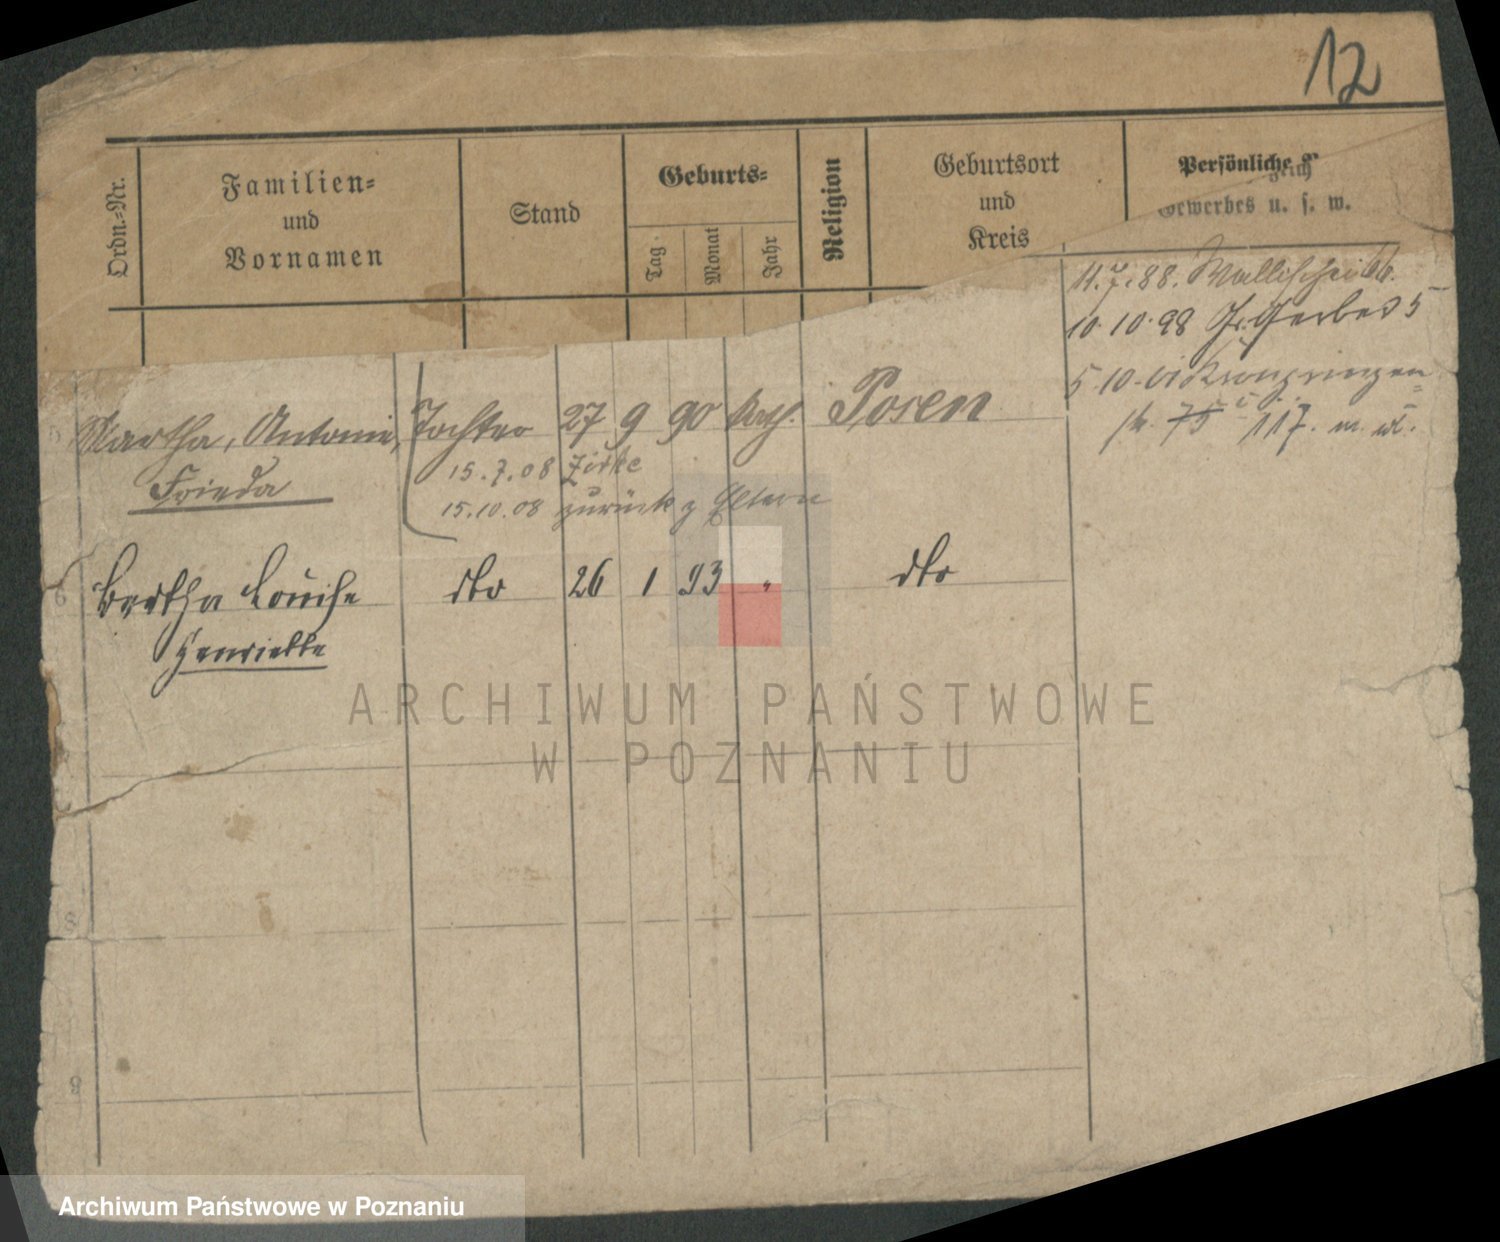 12
Ordn.=Nr.
Familien=
und
Vornamen
Stand
Geburts=
Tag.
Monat
Jahr
Religion
Geburtsort
und
Kreis
Persönliche
Gewerbes u. s. w.
11.7.88. Wallischei 66.
10.10.98 Gr. Gerber 5
5.10.01 Kronprinzen=
str. 75 117.
Martha, Antonie, Tochter 27 9 90 kath. Posen
Frieda
15.7.08 Zirke
15.10.08 zurück z Eltern
6 Bertha Louise dto 26 1 93 " dto
Henriette
8
9
ARCHIWUM PAŃSTWOWE
W POZNANIU
Archiwum Państwowe w Poznaniu